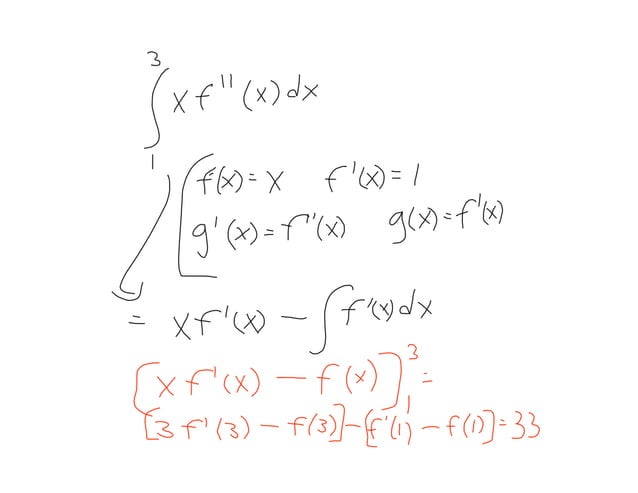 ∫₁³ x f''(x) dx
f(x) = x   f'(x) = 1
g'(x) = f''(x)   g(x) = f'(x)
= x f'(x) − ∫ f'(x) dx
[x f'(x) − f(x)]₁³ =
[3 f'(3) − f(3)] − [f'(1) − f(1)] = 33